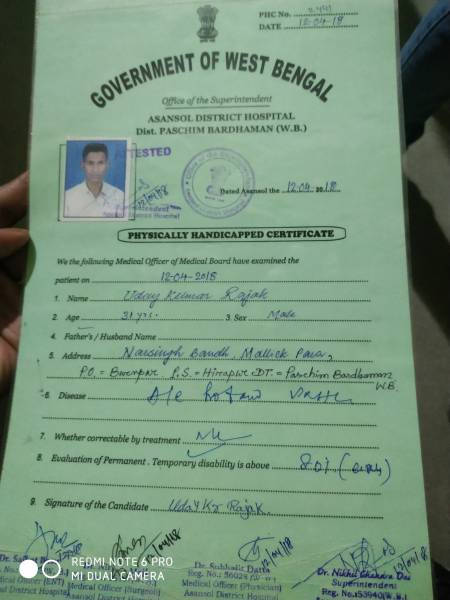 PHC No.
DATE 12-04-18
GOVERNMENT OF WEST BENGAL
Office of the Superintendent
ASANSOL DISTRICT HOSPITAL
Dist. PASCHIM BARDHAMAN (W.B.)
ATTESTED
12/04/18
Superintendent
Dated Asansol the 12-04 2018
PHYSICALLY HANDICAPPED CERTIFICATE
We the following Medical Officer of Medical Board have examined the
patient on 12-04-2018
1. Name Uday Kumar Rajak
2. Age 31 yrs. 3. Sex Male
4. Father's / Husband Name
5. Address Narsingh Bandh, Mallick Para,
P.O. = Burnpur P.S = Hirapur DT. = Paschim Bardhaman
W.B.
6. Disease
7. Whether correctable by treatment
8. Evaluation of Permanent . Temporary disability is above 80%
9. Signature of the Candidate Uday Kr Rajak.
12/04/18
12/04/18
Dr. Subhajit Datta
Dr. Nikhil Chandra Das
Medical Officer (ENT)
Medical Officer (Surgeon)
Medical Officer (Physician)
Superintendent
Asansol District Hospital
REDMI NOTE 6 PRO
MI DUAL CAMERA